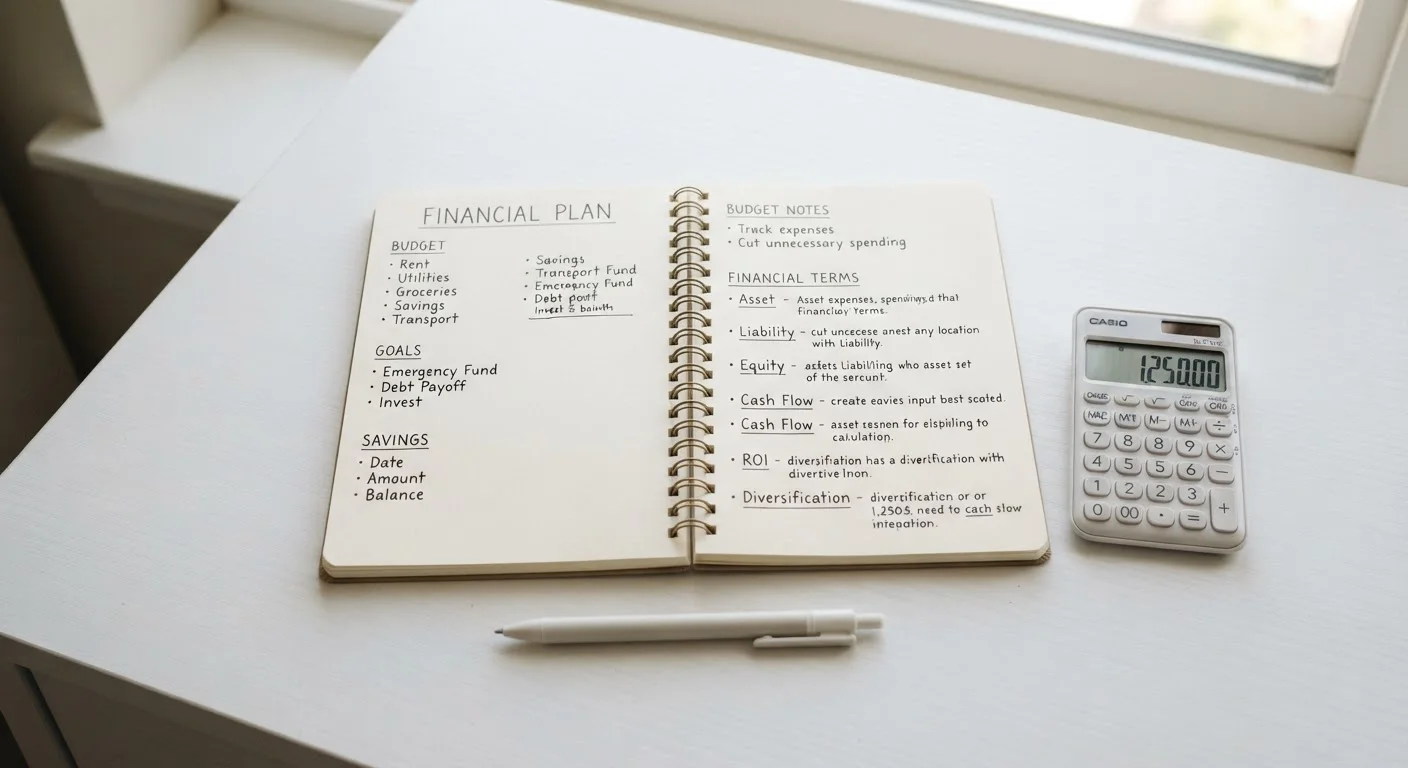 FINANCIAL PLAN
BUDGET
• Rent
• Utilities
• Groceries
• Savings
• Transport
• Savings
• Transport Fund
• Emergency Fund
• Debt
GOALS
• Emergency Fund
• Debt Payoff
• Invest
SAVINGS
• Date
• Amount
• Balance
BUDGET NOTES
• Track expenses
• Cut unnecessary spending
FINANCIAL TERMS
• Asset – Asset expenses, that
• Liability – cut unecese anest any location
with Liability.
• Equity – who asset set
of the sercunt.
• Cash Flow – create eavies input best scated.
• Cash Flow – asset for to
calulation.
• ROI – has a with
• Diversification – or or
1,250S, need to cash slow
CASIO
1,250.00
M–
÷
7 8 8 9 ×
4 5 5 6 –
1 2 2 3 +
0 00 . =